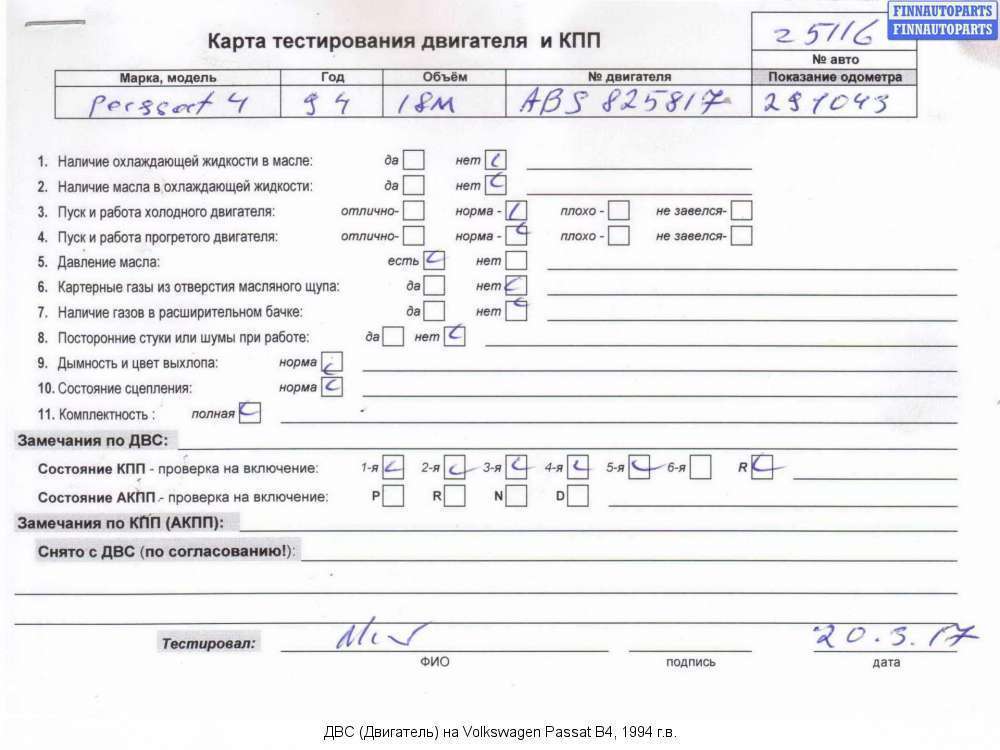 FINNAUTOPARTS
FINNAUTOPARTS
25116
Карта тестирования двигателя и КПП
№ авто
Марка, модель Год Объём № двигателя Показание одометра
Passat 4 94 18м ABS 825817 291043
1. Наличие охлаждающей жидкости в масле: да нет
2. Наличие масла в охлаждающей жидкости: да нет
3. Пуск и работа холодного двигателя: отлично- норма - плохо - не завелся-
4. Пуск и работа прогретого двигателя: отлично- норма - плохо - не завелся-
5. Давление масла: есть нет
6. Картерные газы из отверстия масляного щупа: да нет
7. Наличие газов в расширительном бачке: да нет
8. Посторонние стуки или шумы при работе: да нет
9. Дымность и цвет выхлопа: норма
10. Состояние сцепления: норма
11. Комплектность : полная
Замечания по ДВС:
Состояние КПП - проверка на включение: 1-я 2-я 3-я 4-я 5-я 6-я R
Состояние АКПП - проверка на включение: P R N D
Замечания по КПП (АКПП):
Снято с ДВС (по согласованию!):
Тестировал: 20.3.17
ФИО подпись дата
ДВС (Двигатель) на Volkswagen Passat B4, 1994 г.в.